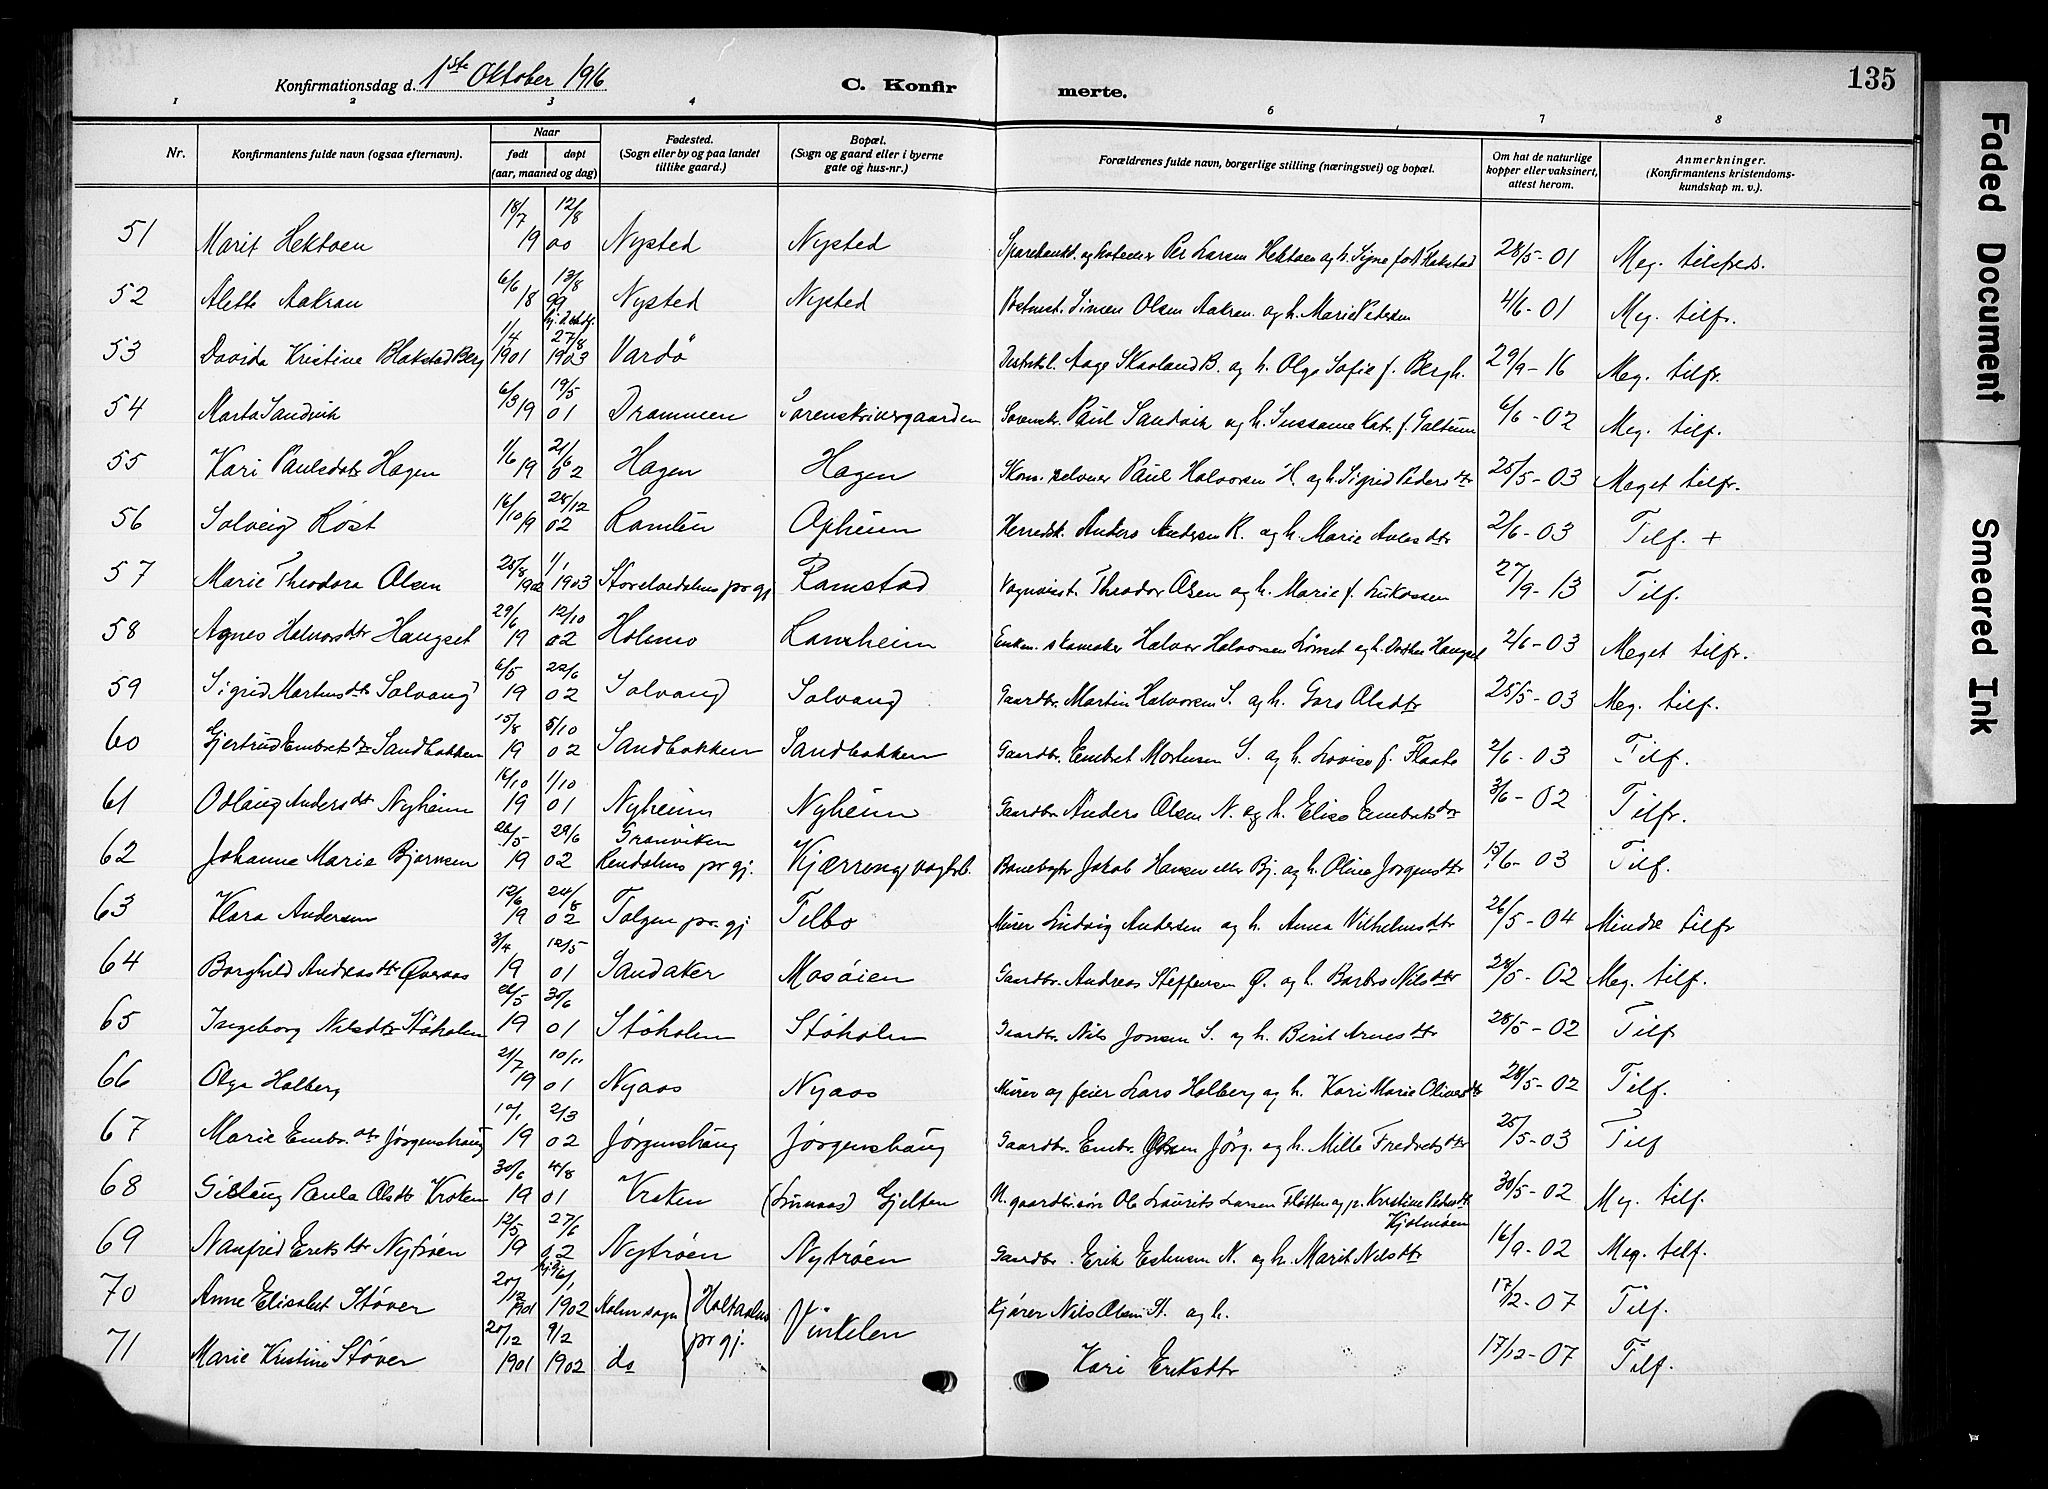 Konfirmationsdag d. 1ste Oktober 1916 C. Konfirmerte. 135
1 2 3 4 5 6 7 8
Nr. Konfirmantens fulde navn (ogsaa efternavn). Naar født døpt (aar, maaned og dag) Fødested. (Sogn eller by og paa landet tillike gaard.) Bopæl. (Sogn og gaard eller i byerne gate og hus-nr.) Forældrenes fulde navn, borgerlige stilling (næringsvei) og bopæl. Om hat de naturlige kopper eller vaksinert, attest herom. Anmerkninger. (Konfirmantens kristendoms-kundskap m. v.).
51 Marit Hektoen 18/7 12/8 19 00 Nysted Nysted Per Larsen Hektoen og h. Signe født Hakstad 28/5-01 Meg. tilfreds.
52 Alette Aakran 6/6 13/8 18 99 Nysted Nysted Postmest. Simen Olsen Aakran og h. Marie Pedersen 4/6-01 Meg. tilfr.
53 Davida Kristine Blakstad Berg 1/4 1901 27/8 1903 Vardö Distriktsl. Aage Skavland B. og h. Olga Sofie f. Bergh. 29/9-16 Meg. tilfr.
54 Marta Sandvik 6/3 19/5 19 01 Drammen Sorenskrivergaarden Sorenskr. Paul Sandvik og h. Sussanne Katr. f. Galtung 6/6-02 Meg. tilf.
55 Kari Paulsdatr Hagen 1/6 21/6 19 02 Hagen Hagen Skom. selveier Paul Halvorsen H. og h. Sigrid Pedersdtr 25/5-03 Meget tilfr.
56 Solveig Röst 16/10 28/12 19 02 Ramlün Opheim Herredsk. Anders Andersen R. og h. Marie Avlesdtr 2/6-03 Tilf. +
57 Marie Theodora Olsen 25/8 1902 1/1 1903 Storelvedalens pr.gj Ramstad Vognvist. Theodor Olsen og h. Marie f. Lukassen 27/9-13 Tilf.
58 Agnes Halvorsdtr Haugset 29/6 12/10 19 02 Holmo Lansheim Enkem. skomaker Halvor Halvorsen Lönset og h. Dorthea Haugset 2/6-03 Meget tilfr.
59 Sigrid Martinsdtr Solvang 6/5 22/6 19 02 Solvang Solvang Gaardbr. Martin Halvorsen S. og h. Goro Olsdtr 25/5-03 Meg. tilf.
60 Gjertrud Embretsdtr Sandbakken 15/8 5/10 19 02 Sandbakken Sandbakken Gaardbr. Embret Mortensen S. og h. Lovise f. Flaate 2/6-03 Tilf.
61 Odlaug Andersdtr Nyheim 16/10 1/10 19 01 Nyheim Nyheim Gaardbr. Anders Olsen N. og h. Elise Embretsdtr 3/6-02 Tilfr.
62 Johanna Marie Bjørnsen 26/5 29/6 19 02 Granviken Rendalens pr.gj. Kjærreng vogterb. Banevogter Jakob Hansen eller Bj. og h. Olina Jørgensdtr 15/6-03 Tilf.
63 Klara Andersen 12/6 24/8 19 02 Tolgen pr.gj Telbo Murer Ludvig Andersen og h. Anna Vilhelmsdtr 26/5-04 Mindre tilfr
64 Borghild Andreasdtr Øveraas 3/4 12/5 19 01 Sandaker Mosöien Gaardbr. Andreas Steffensen Ø. og h. Barbro Nilsdtr 28/5-02 Meg. tilf.
65 Ingeborg Nilsdtr Stöholen 26/5 30/6 19 01 Stöholen Stöholen Gaardbr. Nils Jonsen S. og h. Berit Arnesdtr 28/5-02 Tilf
66 Olga Holberg 21/7 10/11 19 01 Nyaas Nyaas Murer og feier Lars Holberg og h. Kari Marie Olivesdtr 28/5-02 Tilf.
67 Marie Embr.dtr Jørgenshaug 10/1 2/3 19 02 Jørgenshaug Jørgenshaug Gaardbr. Embr. Jörg. og h. Mille Fredriksdtr 25/5-03 Tilf
68 Gislaug Paula Olsdtr Vroken 30/6 4/8 19 01 Vroken (Lunaas) Gjelten U. gaardbr.sön Ole Laurits Larsen Fløtten og p. Kristine Pedersdtr Kjølmoen 30/5-02 Meg. tilf.
69 Nanfrid Eriksdtr Nytrøen 12/5 27/6 19 02 Nytrøen Nytrøen Gaardbr. Erik Estensen N. og h. Marit Nilsdtr 16/9-02 Meg. tilf.
70 Anne Elisabet Støver 20/12 1901 6/1 1902 Aalen sogn Holtaalens pr.gj. Vinkelen Kjörer Nils Olsen St. og h. 17/12-07 Tilf.
71 Marie Kristine Støver 20/12 1901 9/2 1902 do Kari Eriksdtr 17/12-07 Tilf.
Faded Document
Smeared Ink